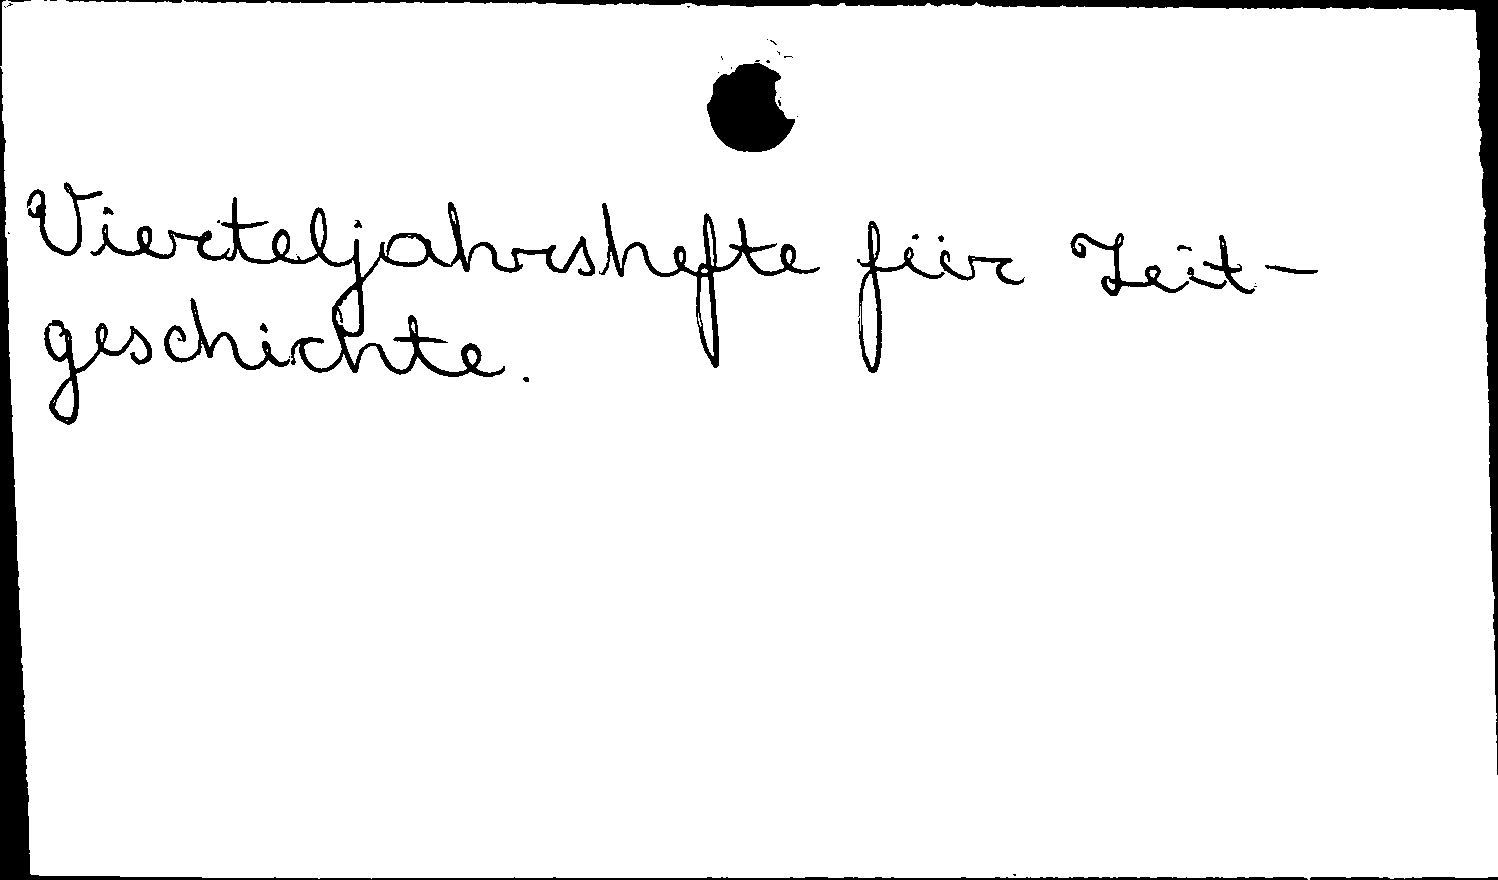 Vierteljahrshefte für Zeit-
geschichte.